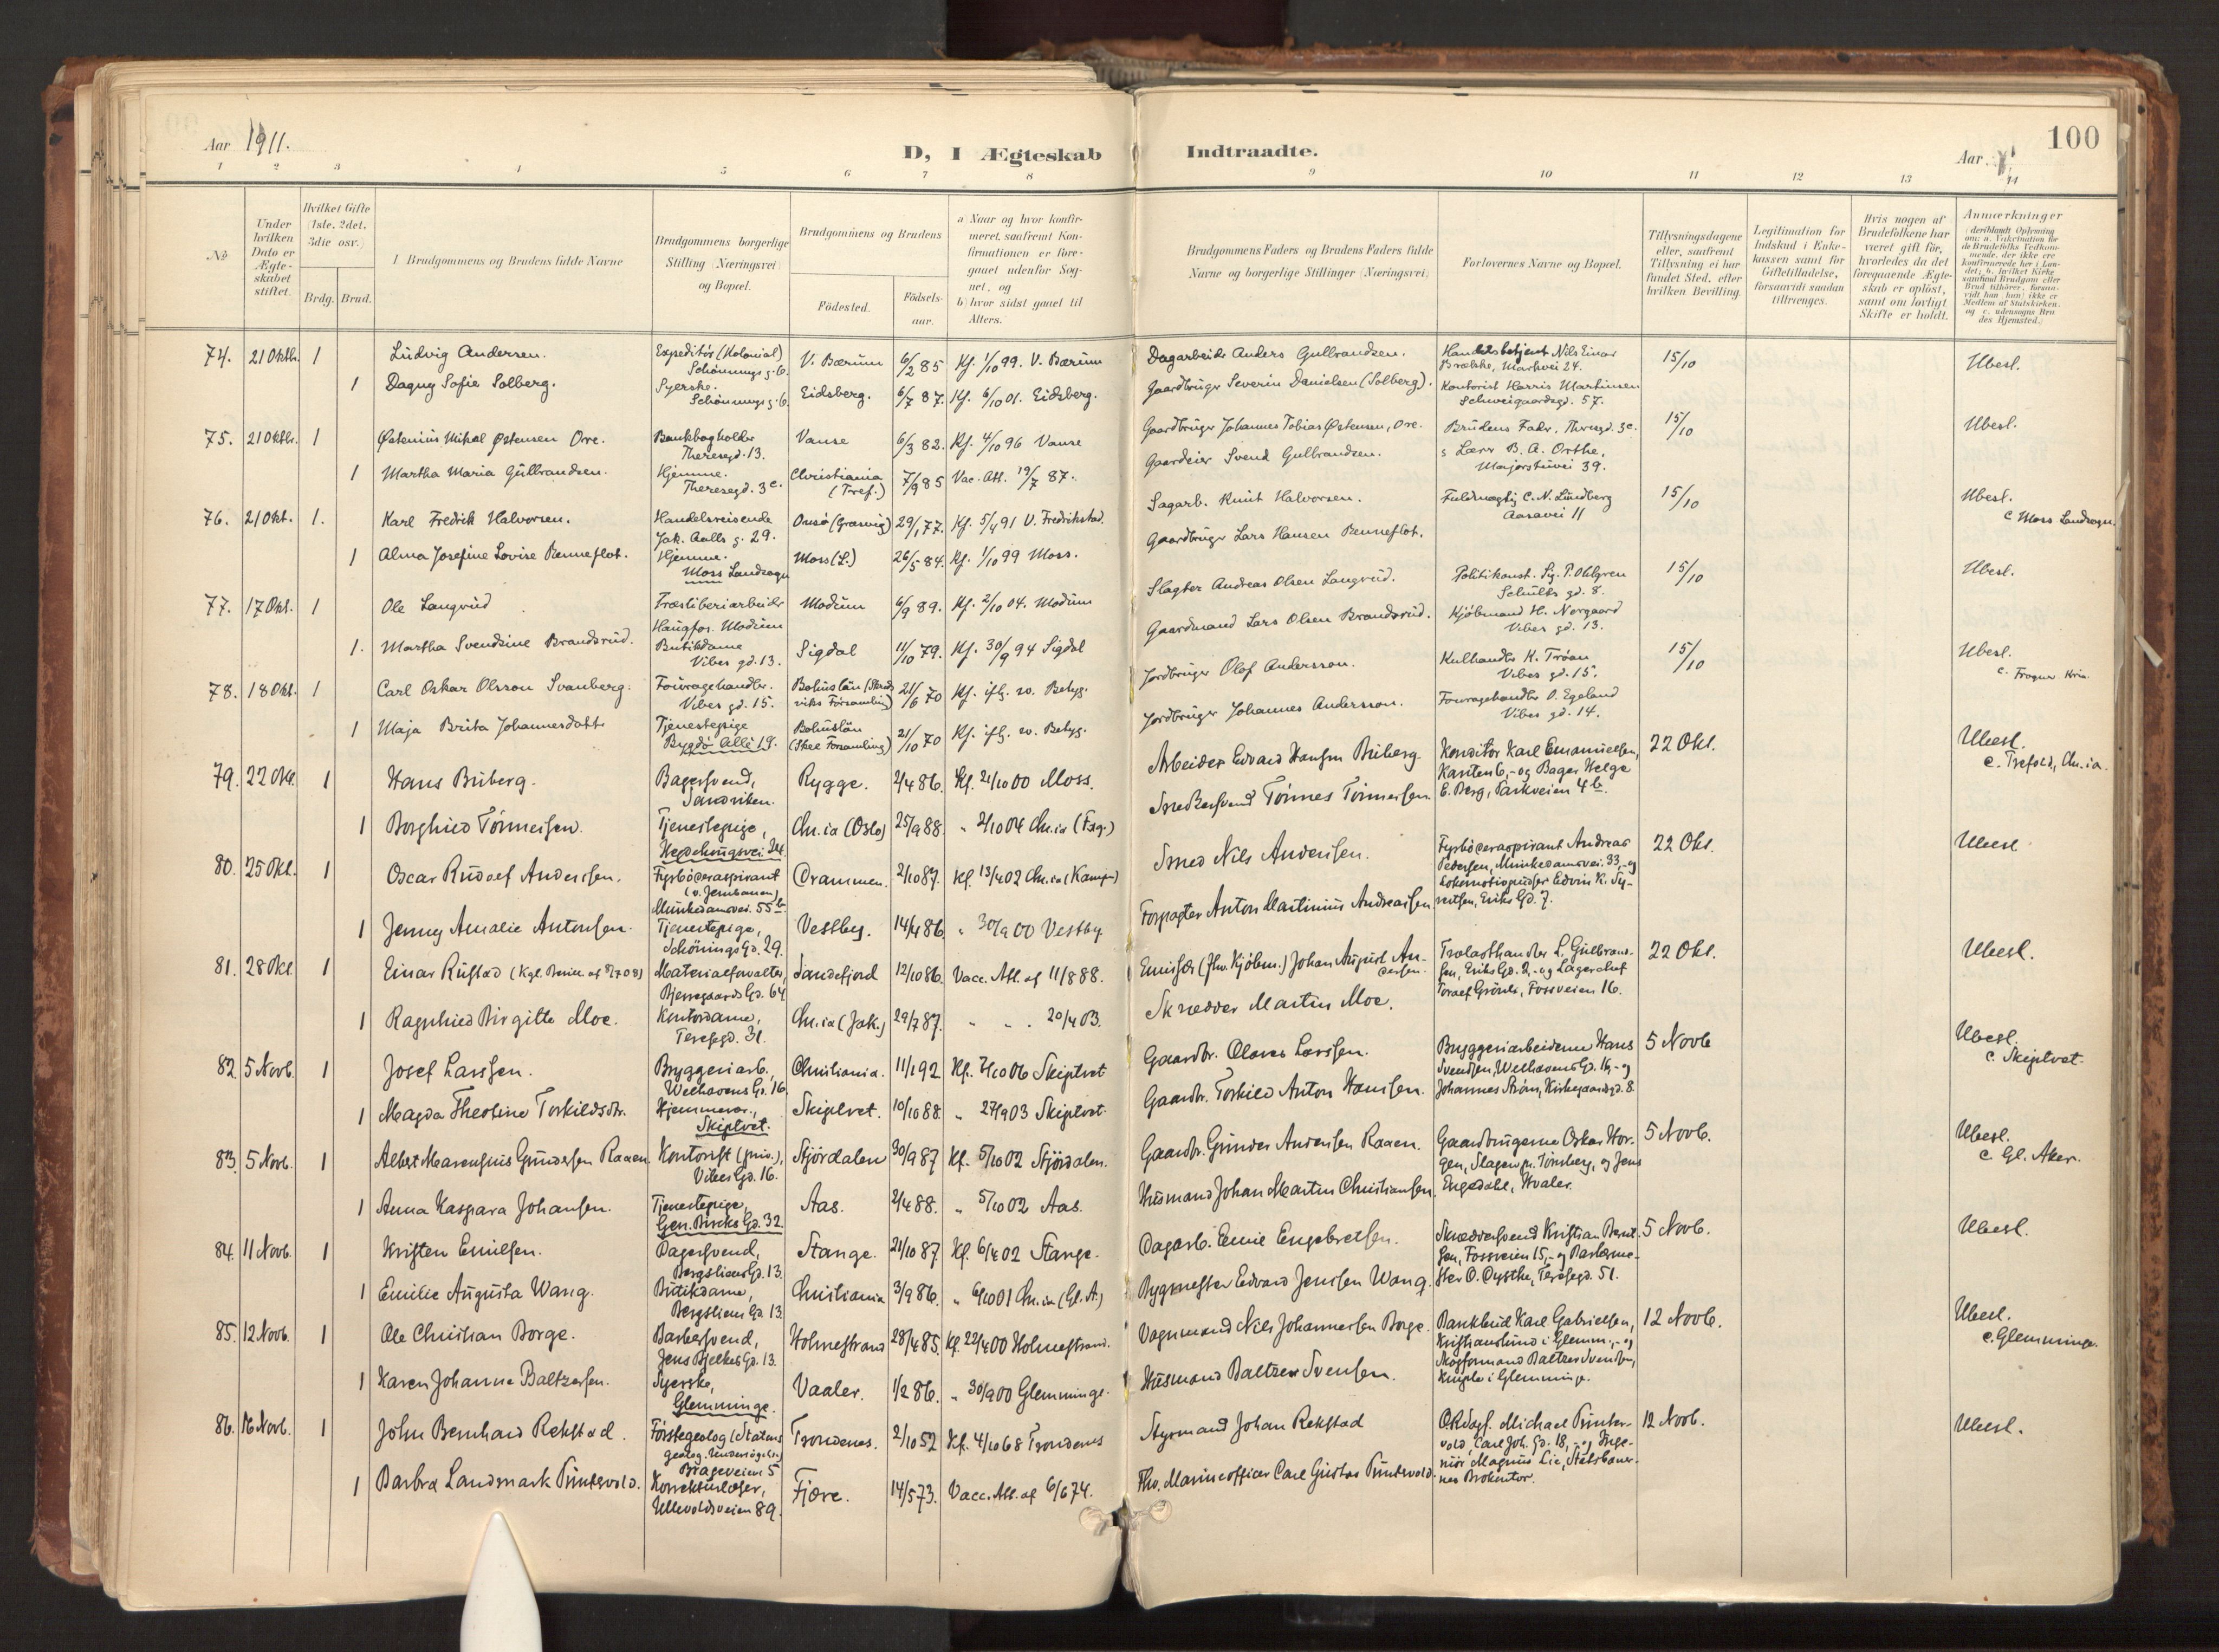 Aar 1911.
D, I Ægteskab Indtraadte.
Aar
100
1 2 3 4 5 6 7 8 9 10 11 12 13 14
No
Under hvilken Dato er Ægteskabet stiftet.
Hvilket Gifte (1ste, 2det, 3die osv.)
Brdg. Brud.
I Brudgommens og Brudens fulde Navne
Brudgommens borgerlige Stilling (Næringsvei) og Bopæl.
Brudgommens og Brudens
Födested.
Födselsaar.
a) Naar og hvor konfirmeret, saafremt Konfirmationen er foregaaet udenfor Sognet, og
b) hvor sidst gaaet til Alters.
Brudgommens Faders og Brudens Faders fulde Navne og borgerlige Stillinger (Næringsvei)
Forlovernes Navne og Bopæl.
Tillysningsdagene eller, saafremt Tillysning ei har fundet Sted, efter hvilken Bevilling.
Legitimation for Indskud i Enkekassen samt for Giftetilladelse, forsaavidt saadan tiltrænges.
Hvis nogen af Brudefolkene har været gift før, hvorledes da det foregaaende Ægteskab er opløst, samt om lovligt Skifte er holdt.
Anmærkninger
74. 21 Oktb. 1 Ludvig Andersen. Expeditör (Kolonial) Schönnings g. 6. V. Bærum 6/2 85 Kf. 1/10 99. V. Bærum Dagarbeider Anders Gulbrandsen. Handelsbetjent Nils Einar Markvei 24. 15/10 Ubesl.
1 Dagny Sofie Solberg. Syerske. Schönnings g. 6. Eidsberg. 6/7 87. Kf. 6/10 01. Eidsberg. Gaardbruger Severin Danielsen (Solberg). Kontorist Harris Martinsen Schweigaardsgd. 57.
75. 21 Oktbr. 1 Østenius Mikal Østensen Ore. Bankbogholder Theresegd. 13. Vanse 6/3 82. Kf. 4/10 96 Vanse Gaardbruger Johannes Tobias Østensen, Ore. Brudens Fader, Theresgd. 3c. 15/10 Ubesl.
1 Martha Maria Gulbrandsen. Hjemme. Theresegd. 3c. Christiania (Tref.) 7/9 85 Vac. Att. 19/7 87. Gaardeier Svend Gulbrandsen. Lærer B. A. Orthe, Majorstuvei 39.
76. 21 Okt. 1. Karl Fredrik Halvorsen. Handelsreisende Jak. Aalls g. 29. Onsö (Græsvig) 29/1 77. Kf. 5/4 91 V. Fredrikstad. Sagarb. Knut Halvorsen. Fuldmægtig C. N. Lundberg Aasavei 11 15/10 Ubesl. c Moss Landsogn.
1 Alma Josefine Lovise Renneflot. Hjemme. Moss Landsogn Moss (L.) 26/5 84. Kf. 1/10 99 Moss. Gaardbruger Lars Hansen Renneflot.
77. 17 Okt. 1 Ole Langrud Træsliberiarbeider Haugfos. Modum Modum 6/9 89. Kf. 2/10 04. Modum Slagter Andreas Olsen Langrud. Politikonst. Sig. P. Ohlgren Schultz gd. 8. 15/10 Ubesl.
1. Martha Svendsine Brandsrud. Butikdame Vibes gd. 13. Sigdal 11/10 79. Kf. 30/9 94 Sigdal Gaardmand Lars Olsen Brandsrud. Kjöbmand H. Norgaard Vibes gd. 13.
78. 18 Okt. 1 Carl Oskar Olsson Svanberg. Fouragehandler. Vibes gd. 15. Bohuslän 21/6 70 Kf. iflg. sv. Betyg. Jordbruger Olof Andersson. Kulhandler K. Tröan Vibes gd. 15. 15/10 Ubesl. c. Frogner Kria.
1 Maja Brita Johannesdatter Tjenestepige Bygdö Allé 19. Bohuslän (Skee Forsamling) 21/10 70 Kf. iflg. sv. Betyg. Jordbruger Johannes Andersson. Fouragehandler O. Egeland Vibes gd. 14.
79. 22 Okt. 1 Hans Buberg. Bagersvend, Sandviken. Rygge. 2/4 86. Kf. 21/10 00 Moss. Arbeider Edvard Hansen Buberg. Konditor Karl Emanuelsen, Kanten 6, - og Bager Helge E. Berg, Parkveien 4b. 22 Okt. Ubesl. c. Trefold., Chr.ia.
1 Borghild Tönnesen. Tjenestepige, Hegdehaugsvei 24. Chr.ia (Oslo) 25/9 88. " 2/10 04 Chr.ia Tönnes Tönnesen.
80. 25 Okt. 1 Oscar Rudolf Andersen. Fyrböderaspirant (v. Jernbanen) Munkedamsvei. 55b. Drammen. 2/10 87. Kf. 13/4 02 Chr.ia (Kampen) Smed Nils Andersen. Fyrböderaspirant Andreas Pedersen, Munkedamsvei. 33, - og Lokomotivpudser Edvin K. Syvertsen, Eriks Gd. 7. 22 Okt. Ubesl
1 Jenny Amalie Antonsen. Tjenestepige, Schönings Gd. 29. Vestby. 14/4 86 " 30/9 00 Vestby Forpagter Anton Martinius Andreassen
81. 28 Okt. 1 Einar Rustad Materialforvalter, Bjerregaards Gd. 64 Sandefjord 12/10 86. Vacc. Att. af 11/8 88. Emissær (fhv. Kjöbm.) Johan August Andersen. Trælasthandler L. Gulbrandsen, Eriks Gd. 2, - og Lagerchef Toralf Grönli, Fossveien 16. 22 Okt. Ubesl.
1 Ragnhild Birgitte Moe. Kontordame, Teresegd. 31. Chr.ia (Jak.) 29/7 87. " " . 20/4 03. Skrædder Martin Moe.
82 5 Novb. 1 Josef Larssen. Bryggeriarb., Welhavens Gd. 16. Christiania. 11/1 92 Kf. 7/10 06 Skiptvet Gaardbr. Olaves Larssen. Bryggeriarbeiderne Hans Svendsen, Welhavens Gd. 16, - og Johannes Ström, Kirkegaardsgd. 8. 5 Novb Ubesl. c. Skiptvet.
1 Magda Theoline Torkildsdtr. Hjemmevær., Skiptvet. Skiptvet. 10/10 88. " 27/9 03 Skiptvet. Gaardbr. Torkild Anton Hansen.
83. 5 Novb. 1 Albert Marensius Gundersen Raaen. Kontorist (priv.), Vibes Gd. 16. Stjördalen 30/9 87 Kf. 5/10 02 Stjördalen. Gaardbr. Gunder Andersen Raaen. Gaardbrugerne Oskar Horgen, Slagen pr. Tönsberg, og Jens Engedahl, Hvaler. 5 Novb. Ubesl. c. Gl. Aker.
1 Anna Kaspara Johansen. Tjenestepige, Gen. Bircks Gd. 32. Aas. 2/4 88. " 5/10 02 Aas. Husmand Johan Martin Christiansen.
84. 11 Novb. 1 Kristen Emilsen. Bagersvend, Bergsliens Gd. 13. Stange. 21/10 87 Kf. 6/4 02 Stange. Dagarb. Emil Engebretsen. Skræddersvend Kristian Berntsen, Fossveien 15, - og O. Dysthe, Teresegd. 51. 5 Novb. Ubesl.
1 Emilie Augusta Wang. Butikdame, Bergsliens Gd. 13. Christiania 3/9 86. " 6/10 01 Chr.ia (Gl. A.) Bygmester Edvard Jenssen Wang.
85. 12 Novb. 1 Ole Christian Borge. Barbersvend, Jens Bjelkes Gd. 13. Holmestrand 28/4 85. Kf. 22/4 00 Holmestrand. Vognmand Nils Johannessen Borge. Bankbud Karl Gabrielsen, Kristianslund i Glemm., - og Skogformand Baltzer Svendsen, i Glemminge. 12 Novb. Ubesl. c. Glemminge.
1 Karen Johanne Baltzersen. Syerske, Glemminge. Vaaler. 1/2 86. " 30/9 00 Glemminge. Husmand Baltzer Svensen.
86. 16 Novb. 1 John Bernhard Rekstad. Förstegeolog (Statens geolog. Undersögelse) Brageveien 5 Trondenes. 2/10 52 Kf. 4/10 68 Trondenes Styrmand Johan Rekstad O.R.Sagf. Michael Puntervold, Carl Joh. Gd. 18, - og Ingeniör Magnus Lie, Statsbanernes Brokontor. 12 Novb. Ubesl.
1 Barbra Landmark Puntervold. Korrekturlæser, Ullevoldsveien 89. Fjære. 14/5 73. Vacc. Att. af 6/6 74. Fhv. Marineofficer Carl Gustav Puntervold.